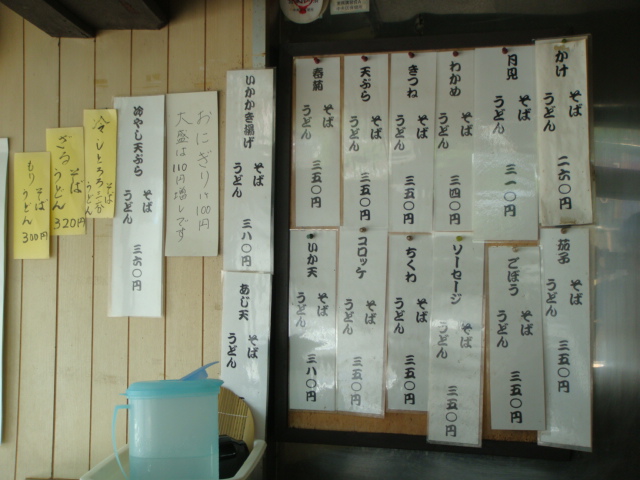 かけ そば うどん 二六〇円
月見 そば うどん 三一〇円
わかめ そば うどん 三四〇円
きつね そば うどん 三五〇円
天ぷら そば うどん 三五〇円
春菊 そば うどん 三五〇円
茄子 そば うどん 三五〇円
ごぼう そば うどん 三五〇円
ソーセージ そば うどん 三五〇円
ちくわ そば うどん 三五〇円
コロッケ そば うどん 三五〇円
いか天 そば うどん 三八〇円
いかかき揚げ そば うどん 三八〇円
あじ天 そば うどん
おにぎり1ケ100円
大盛は110円増しです
冷やし天ぷら そば うどん 三六〇円
冷しとろろ そば うどん
ざる そば うどん 320円
もり そば うどん 300円